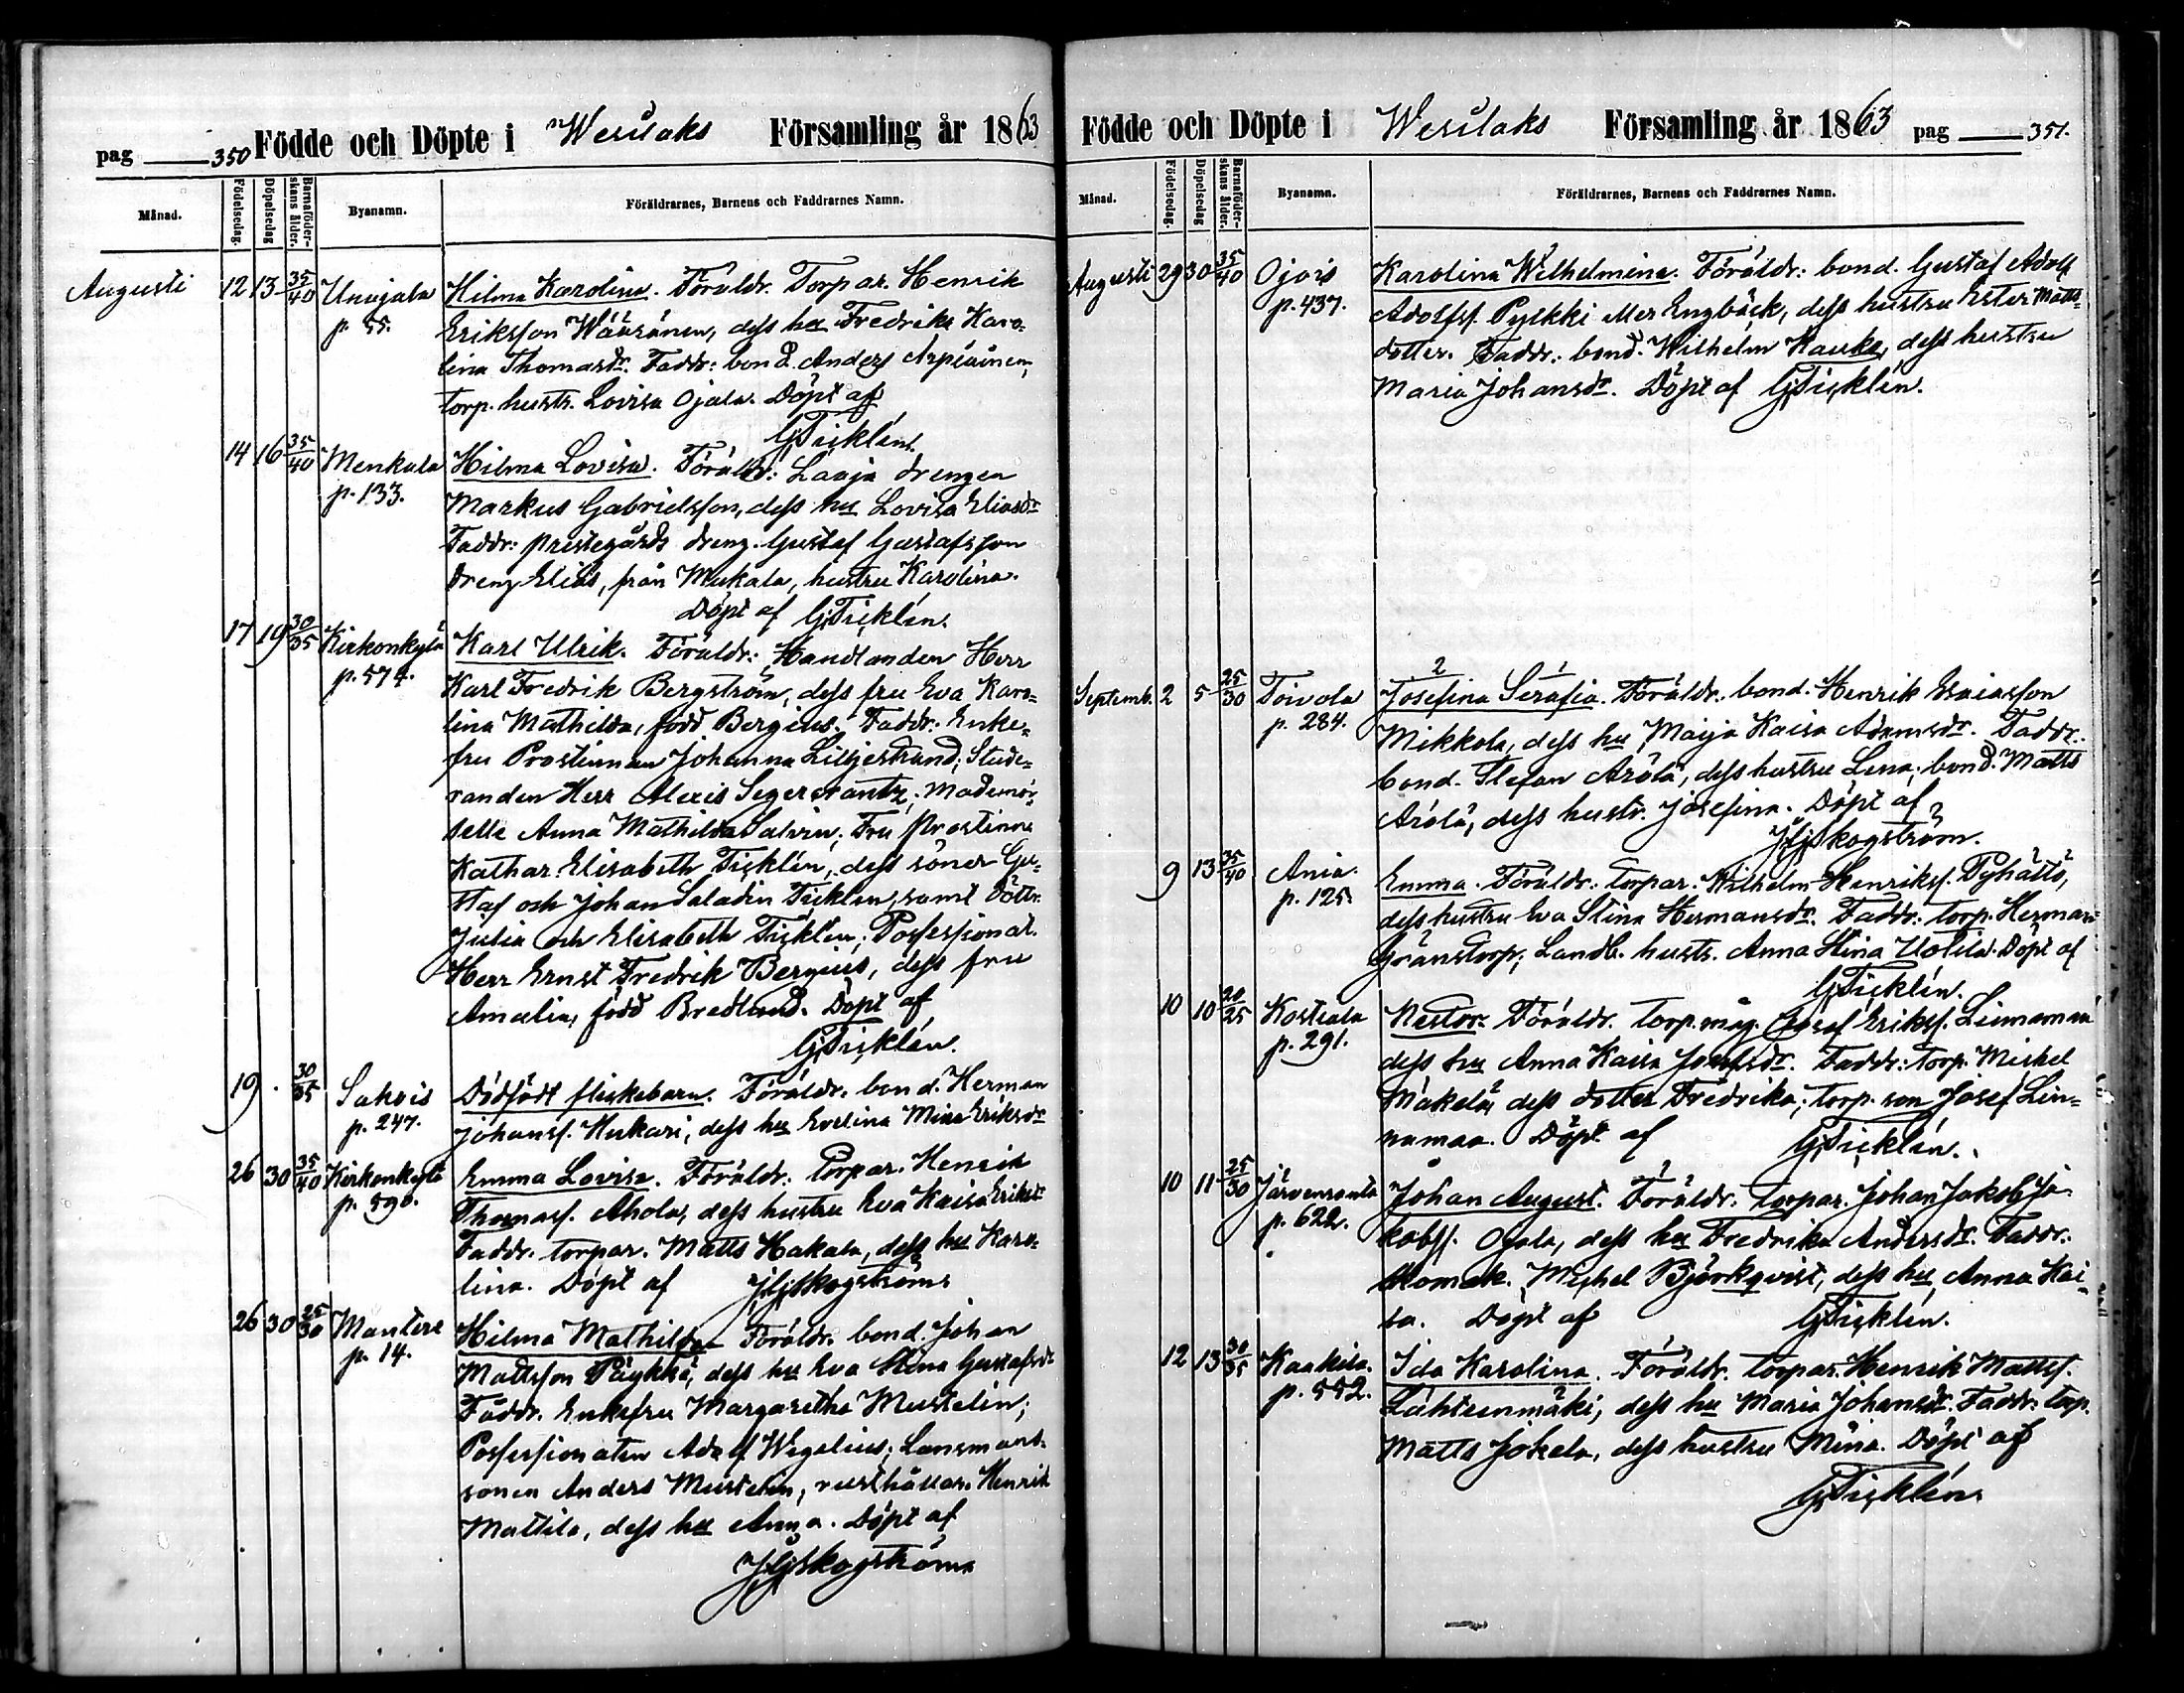 pag 350 Födde och Döpte i Wesilaks Församling år 1863
Månad. Födelsedag. Döpelsedag Barnaföderskans ålder. Byanamn. Föräldrarnes, Barnens och Faddrarnes Namn.
Augusti 12 13 35/40 Unnjala Hilma Karolina. Föräldr. Torpar. Henrik
p. 55. Eriksson Wääränen, dess hu Fredrika Karo-
lina Thomasdr. Faddr: bond. Anders Arpiainen,
torp. hustr. Lovisa Ojala. Döpt af
G Ticklén.
14 16 35/40 Menkala Hilma Lovisa. Föräldr: Laaja drengen
p. 133. Markus Gabrielsson, dess hu Lovisa Eliasdr
Faddr: prestegårds dreng. Gustaf Gustafsson
dreng Elias, från Mukala, hustru Karolina.
Döpt af G Ticklén.
17 19 30/35 Kirkonkylä Karl Ulrik. Föräldr: Handlanden Herr
p. 574. Karl Fredrik Bergström, dess fru Eva Karo-
lina Mathilda, född Bergius. Faddr. Enke-
fru Prostinnan Johanna Liljestrand; Stude-
randen Herr Alexis Segercrantz; Mademoi-
selle Anna Mathilda Salvin; Fru Prostinna
Kathar. Elisabeth Ticklén, dess söner Gu-
staf och Johan Saladin Ticklén, samt döttr.
Julia och Elisabeth Ticklén; Possessionat.
Herr Ernst Fredrik Bergius, dess fru
Amalia, född Bredlund. Döpt af
G Ticklén.
19 . 30/35 Sakois Dödfödt flickebarn. Föräldr. bond. Herman
p. 247. Johanss. Hukari, dess hu Evelina Mina Eriksdr
26 30 35/40 Kirkonkylä Emma Lovisa. Föräldr: torpar. Henrik
p. 590. Thomass. Ahola, dess hustru Eva Kaisa Eriksdr
Faddr. torpar. Matts Hakala, dess hu Karo-
lina. Döpt af JG Skogström
26 30 25/30 Mantere Hilma Mathilda Föräldr. bond. Johan
p. 14. Mattsson Päykkä, dess hu Eva Stina Gustafsdr
Faddr. Enkefru Margaretha Mustelin;
Possessionaten Adolf Wegelius; Länsmans
sonen Anders Mustelin, rusthållar. Henrik
Mattila, dess hu Anna. Döpt af
JG Skogström
Födde och Döpte i Wesilaks Församling år 1863 pag 351.
Månad. Födelsedag. Döpelsedag Barnaföderskans ålder. Byanamn. Föräldrarnes, Barnens och Faddrarnes Namn.
Augusti 29 30 35/40 Ojois Karolina Wilhelmina. Föräldr: bond. Gustaf Adolf
p. 437. Adolfss. Pyekki eller Engbäck, dess hustru Ester Matts-
dotter. Faddr.: bond. Wilhelm Hauke, dess hustru
Maria Johansdr. Döpt af G Ticklén.
2 1
Septemb. 2 5 25/30 Toivola Josefina Serafia. Föräldr. bond. Henrik Esaiasson
p. 284. Mikkola, dess hu Maija Kaisa Adamsdr. Faddr.
bond. Stefan Arölä, dess hustru Lena; bond. Matts
Arölä, dess hustr. Josefina. Döpt af
JG Skogström.
9 13 35/40 Ania. Emma. Föräldr: torpar. Wilhelm Henrikss. Pyhättö,
p. 125. dess hustru Eva Stina Hermansdr. Faddr: torp. Herman
Gränstorp; Landb. hustr. Anna Stina Uotila. Döpt af
G Ticklén.
10 10 20/25 Kostiala Nestor. Föräldr. torp. måg. Josef Erikss. Linnamaa
p. 291. dess hu Anna Kaisa Josefsdr. Faddr: torp. Michel
Mäkelä, dess dotter Fredrika; torp. son Josef Lin-
namaa. Döpt af G Ticklén.
10 11 25/30 Järvenranta Johan August. Föräldr. torpar. Johan Jakob Ja-
p. 622. kobss. Ojala, dess hu Fredrika Andersdr. Faddr.
skomak. Michel Björkqvist, dess hu Anna Kai-
sa. Döpt af G Ticklén.
12 13 30/35 Kaakila Ida Karolina. Föräldr. torpar. Henrik Mattss.
p. 552. Lähteenmäki, dess hu Maria Johansdr. Faddr: torp.
Matts Jokela, dess hustru Mina. Döpt af
G Ticklén